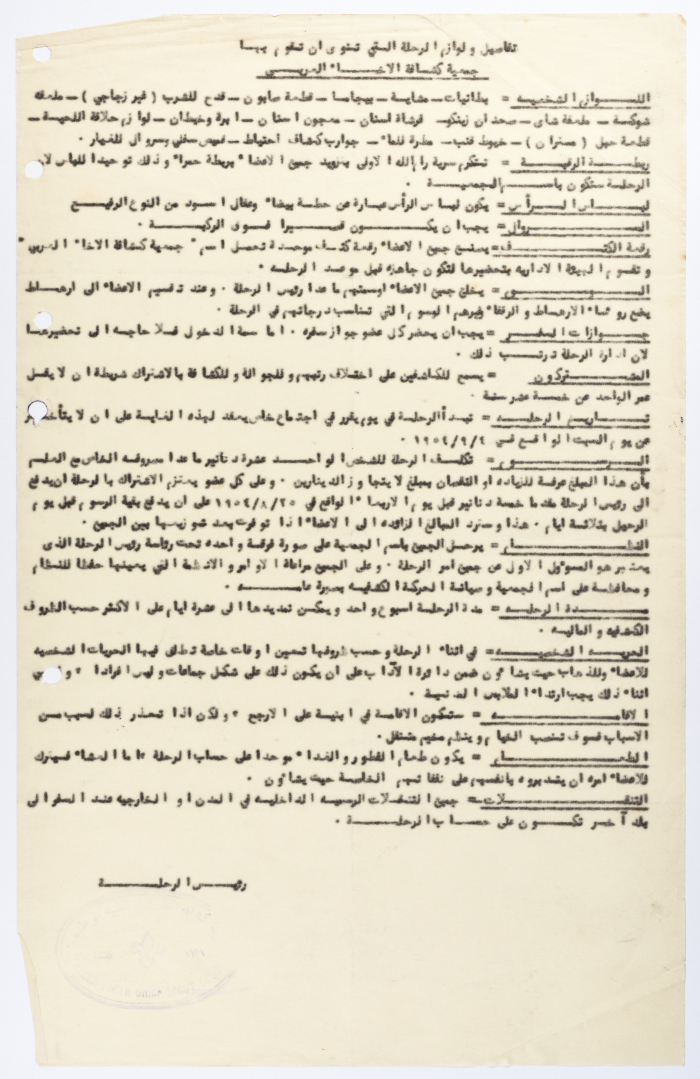 تفاصيل ولوازم الرحلة التي تنوى ان تقوم بهـا
جمعية كشافة الاخـاء العربـي
اللـوازم الشخصيه = بطانيات ـ مشاية ـ بيجاما ـ قطعة صابون ـ قدح للشرب ( غير زجاجي ) ـ ملعقه
شوكـة ـ ملعقة شاى ـ صحدان زينكو ـ فرشاة اسنان ـ معجون اسنان ـ ابرة وخيطان ـ لوازم حلاقة اللحيـة ـ
قطعة حبل ( متران ) ـ خيوط قنب ـ مطرة للماء ـ جوارب كشاف احتياط ـ قميص سفلي وسروال للغيار ٠
ربطـة الرقبـة = ستقوم سرية رام الله الاولى بتزويد جميع الاعضاء بربطة حمراء وذلك توحيدا للباس لان
الرحلـة ستكون باسـم الجمعيـة ٠
لبـاس الـرأس = يكون لباس الرأس عبارة عن حطـة بيضاء وعقال اسود من النوع الرفيـع
السـروال = يجب ان يكـون قصيـرا فـوق الركبـة ٠
رقعة الكتـف = يصنـع جميع الاعضاء رقعة كتـف موحدة تحمـل اسم " جمعية كشافة الاخاء العربي "
وتقـوم الهيئة الاداريه بتحضيرها لتكون جاهزه قبل موعد الرحلـه ٠
الوسـوم = يخلع جميع الاعضاء اوسمتهم ما عدا رئيس الرحلة ٠ وعند تقسيم الاعضاء الى ارهـاط
يضع رؤساء الارهـاط والرفقاء وغيرهم الوسوم التي تناسب درجاتهم في الرحلة ٠
جـوازات السفـر = يجب ان يحضر كل عضو جواز سفره ٠ اما سمة الدخول فـلا حاجـه الى تحضيرهـا
لان ادارة الرحلة سترتـب ذلك ٠
المشـتركون = يسمح للكشافين على اختـلاف رتبهم وللجوالة وللكشافة بالاشتراك شريطة ان لا يقـل
عمر الواحد عن خمسة عشر سنـة ٠
تـاريـخ الرحلـه = تبـدأ الرحلـة في يوم يقرر في اجتماع خاص يعقد لهذه الغـاية على ان لا يتأخـر
عن يوم السبت الواقـع فـي ١٩٥٤/٩/٤ ٠
الرسـوم = تكلـف الرحلة للشخص الواحـد عشرة دنانير ما عدا مصروفـه الخاص مع العلـم
بأن هذا المبلغ عرضة للزياده او النقصان بمبلغ لا يتجاوز الدينارين ٠ وعلى كل عضو يعتزم الاشتراك بالرحلة ان يدفع
الى رئيس الرحلة مقدما خمسة دنانير قبل يوم الاربعاء الواقع في ١٩٥٤/٨/٢٥ على ان يدفع بقية الرسوم قبل يوم
الرحيل بثلاثـة ايام ٠ هذا وستـرد المبالـغ الزائده الـى الاعضاء اذا توفرت بعد توزيعها بين الجميع ٠
النظـام = يرحـل الجميع باسم الجمعية على صورة فرقـة واحده تحت رئاسة رئيس الرحلة الذى
يعتبر هو المسؤول الاول عن جميع امور الرحلة ٠ وعلى الجميع مراعاة الاوامر والانظمة التي يعينها حفظا للنظام
ومحافظـة على اسم الجمعية وصيانة الحركة الكشفيـه بصورة عامـه ٠
مـدة الرحلـه = مدة الرحلـة اسبوع واحد ويمكـن تمديدها الى عشرة ايام على الاكثر حسب الظروف
الكشفيه والماليـه ٠
الحريـه الشخصيـه = في اثناء الرحلة وحسب ظروفها تتعيـن اوقات خاصة تطلـق فيها الحريات الشخصيه
للاعضاء وللذهاب حيث يشاؤون ضمن دائرة الآداب على ان يكون ذلك على شكل جماعات وليس افرادا ٠ وفي
اثناء ذلك يجب ارتداء الملابس المدنيـة ٠
الاقامـه = ستكون الاقامـة في ابنيـة على الارجح ٠ ولكن اذا تعـذر ذلك لسبب مـن
الاسباب فسوف تنصب الخيام وينظم مخيم مستقل ٠
الطعـام = يكون طعام الفطور والغداء موحدا على حساب الرحلة ٠ اما العشاء فسيترك
للاعضاء امره ان يتدبروه بانفسهم على نفقاتهـم الخاصـة حيث يشاؤون ٠
التنقـلات = جميع التنقـلات الرسميـه الداخليـه في المدن او الخارجيه عنـد السفـر الى
بلد آخـر تكـون على حسـاب الرحلـة ٠
رئيـس الرحلـة